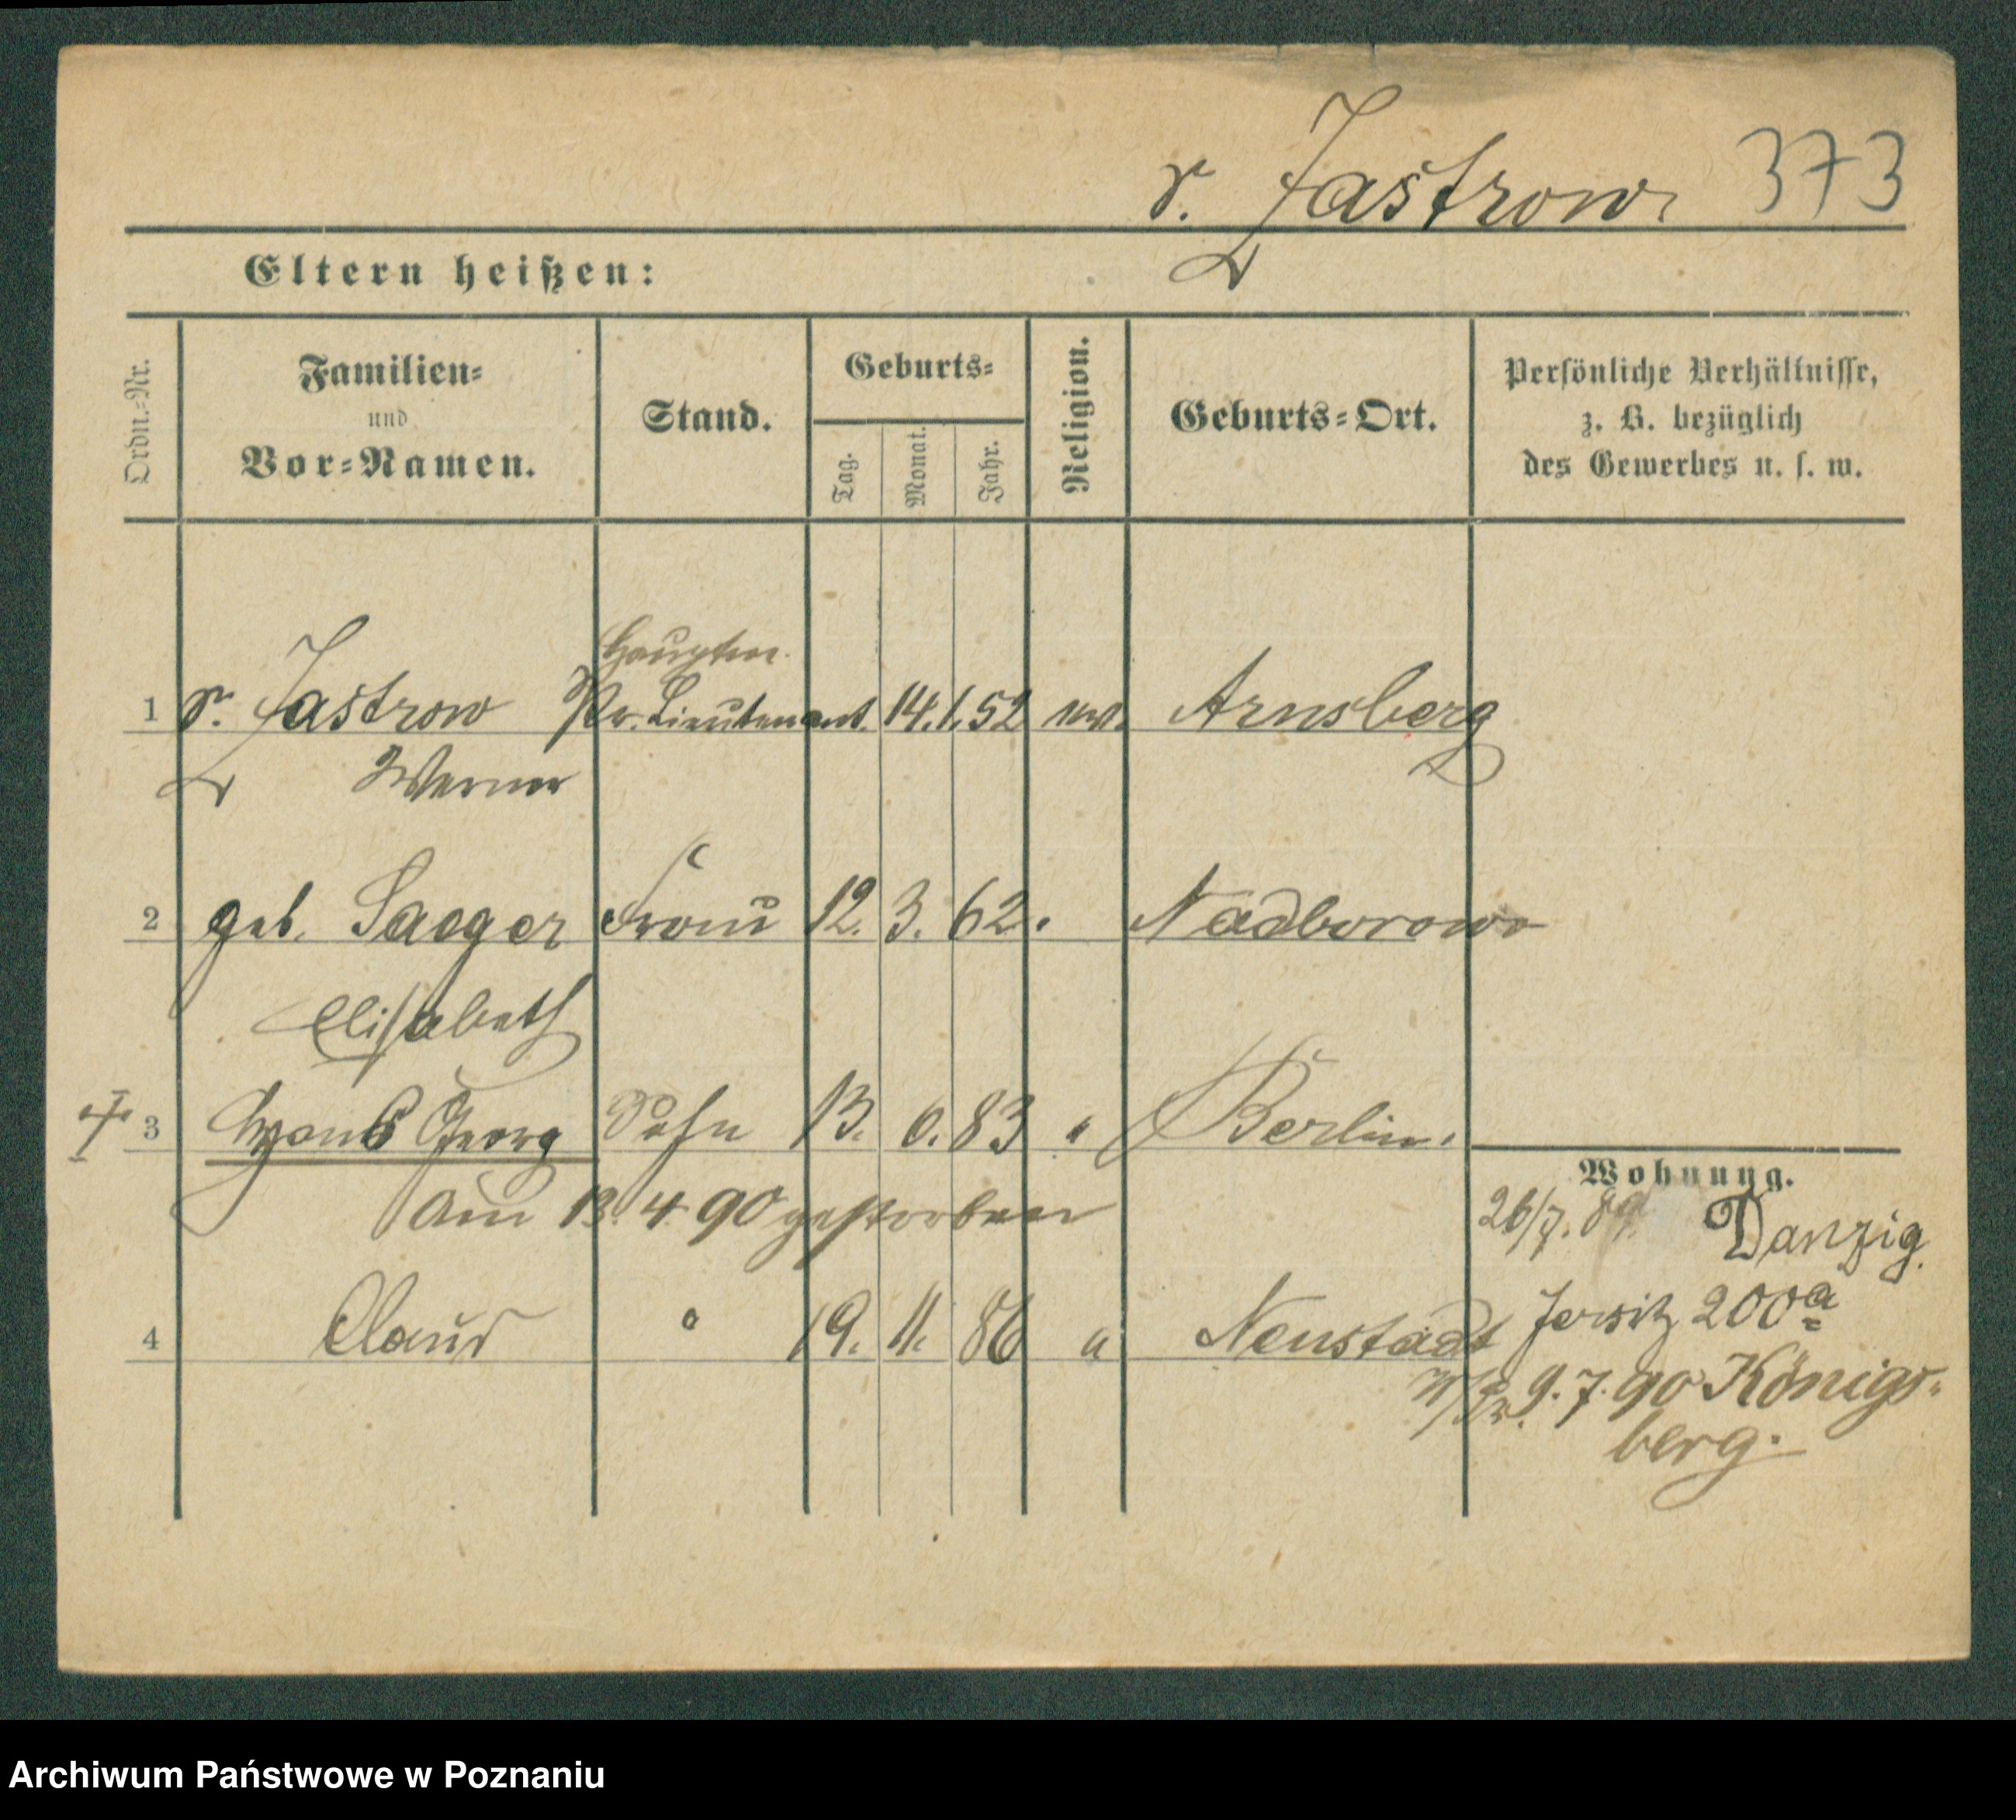 v. Zastrow 373
Eltern heißen:
Ordn.-Nr.
Familien-
und
Vor-Namen.
Stand.
Geburts-
Tag.
Monat.
Jahr.
Religion.
Geburts-Ort.
Persönliche Verhältnisse,
z. B. bezüglich
des Gewerbes u. s. w.
Hauptm.
1 v. Zastrow Pr. Lieutenant. 14. 1. 52 ev. Arnsberg
Werner
2 geb. Saeger Frau 12. 3. 62. Nadborowo
Elisabeth
3 Hans Georg Sohn 13. 6. 83 " Berlin.
am 13. 4. 90 gestorben
Wohnung.
26/7. 89. Danzig.
Jersitz 200a
4 Claus " 19. 11. 86 " Neustadt
W/Pr. 9. 7. 90 Königs-
berg.
Archiwum Państwowe w Poznaniu